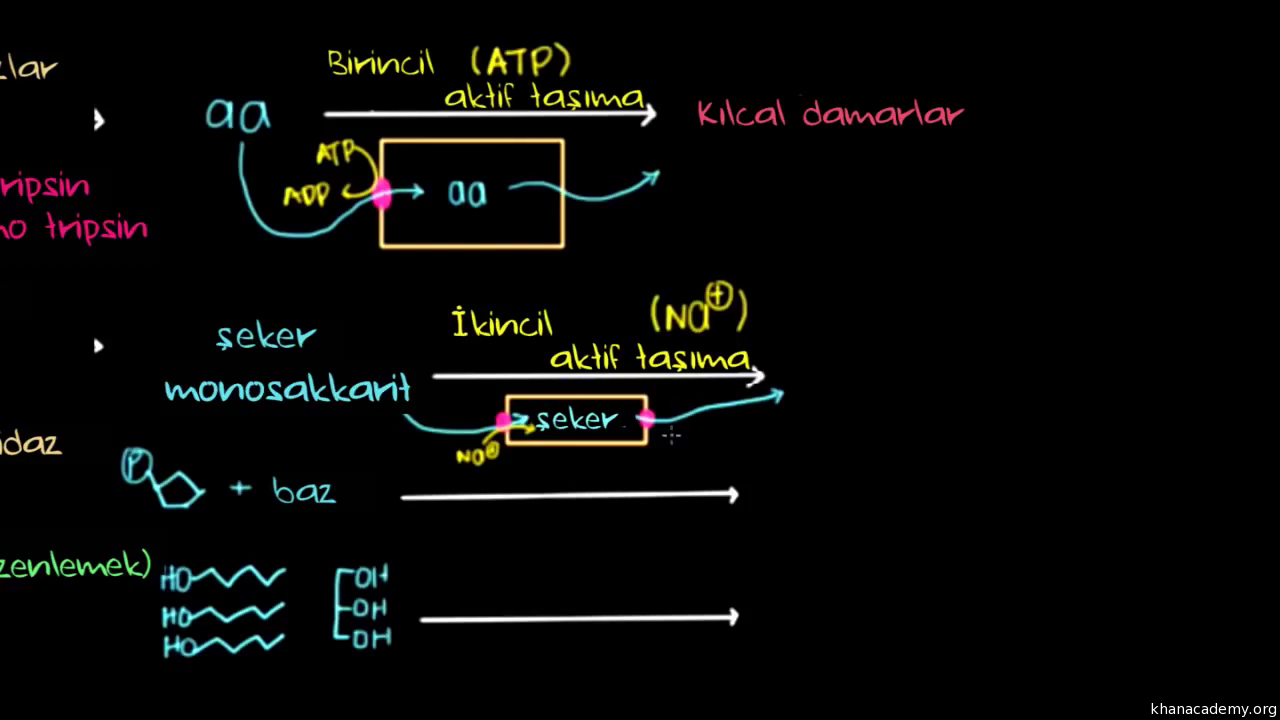 Birincil (ATP)
aktif taşıma
aa
Kılcal damarlar
ATP
ADP
aa
ripsin
tripsin
İkincil (Na+)
aktif taşıma
şeker
monosakkarit
şeker
Na+
P
+ baz
zenlemek)
HO
HO
HO
OH
OH
OH
khanacademy.org